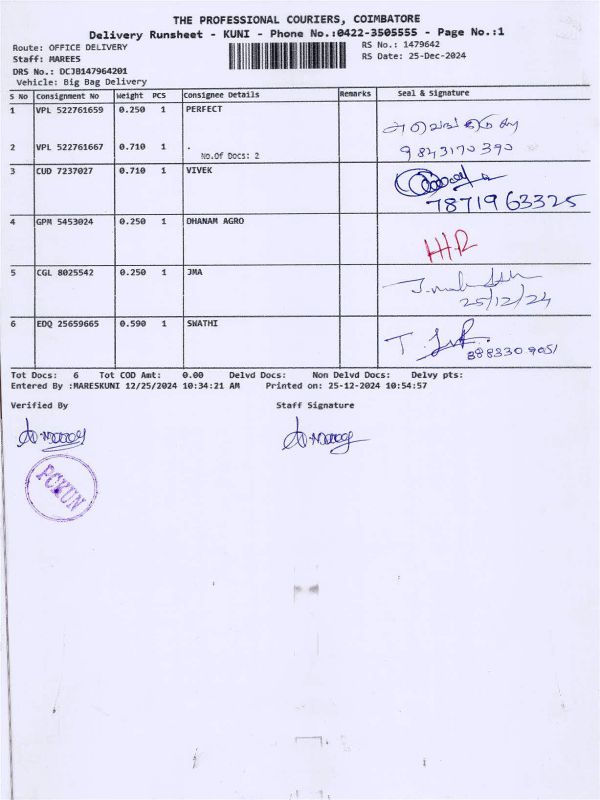 THE PROFESSIONAL COURIERS, COIMBATORE
Delivery Runsheet - KUNI - Phone No.:0422-3505555 - Page No.:1
Route: OFFICE DELIVERY RS No.: 1479642
Staff: MAREES RS Date: 25-Dec-2024
DRS No.: DCJB147964201
Vehicle: Big Bag Delivery
S No Consignment No Weight PCS Consignee Details Remarks Seal & Signature
1 VPL 522761659 0.250 1 PERFECT
2 VPL 522761667 0.710 1 . 9843170390
No.Of Docs: 2
3 CUD 7237027 0.710 1 VIVEK
7871963325
4 GPM 5453024 0.250 1 DHANAM AGRO
5 CGL 8025542 0.250 1 JMA
25/12/24
6 EDQ 25659665 0.590 1 SWATHI
Tot Docs: 6 Tot COD Amt: 0.00 Delvd Docs: Non Delvd Docs: Delvy pts:
Entered By :MARESKUNI 12/25/2024 10:34:21 AM Printed on: 25-12-2024 10:54:57
Verified By Staff Signature
PCKUN